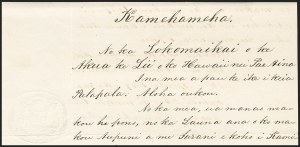 Kamehameha.
No ka Lokomaikai o ke
Akua ke Lii o ko Hawaii nei Pae Aina
Ina mea a pau ke ike i keia
Palapala: Aloha oukou.
No ka mea, ua manao ma
kou he pono, no ka Launa ana o ko ma
kou Aupuni a me Farani e koho i Kani